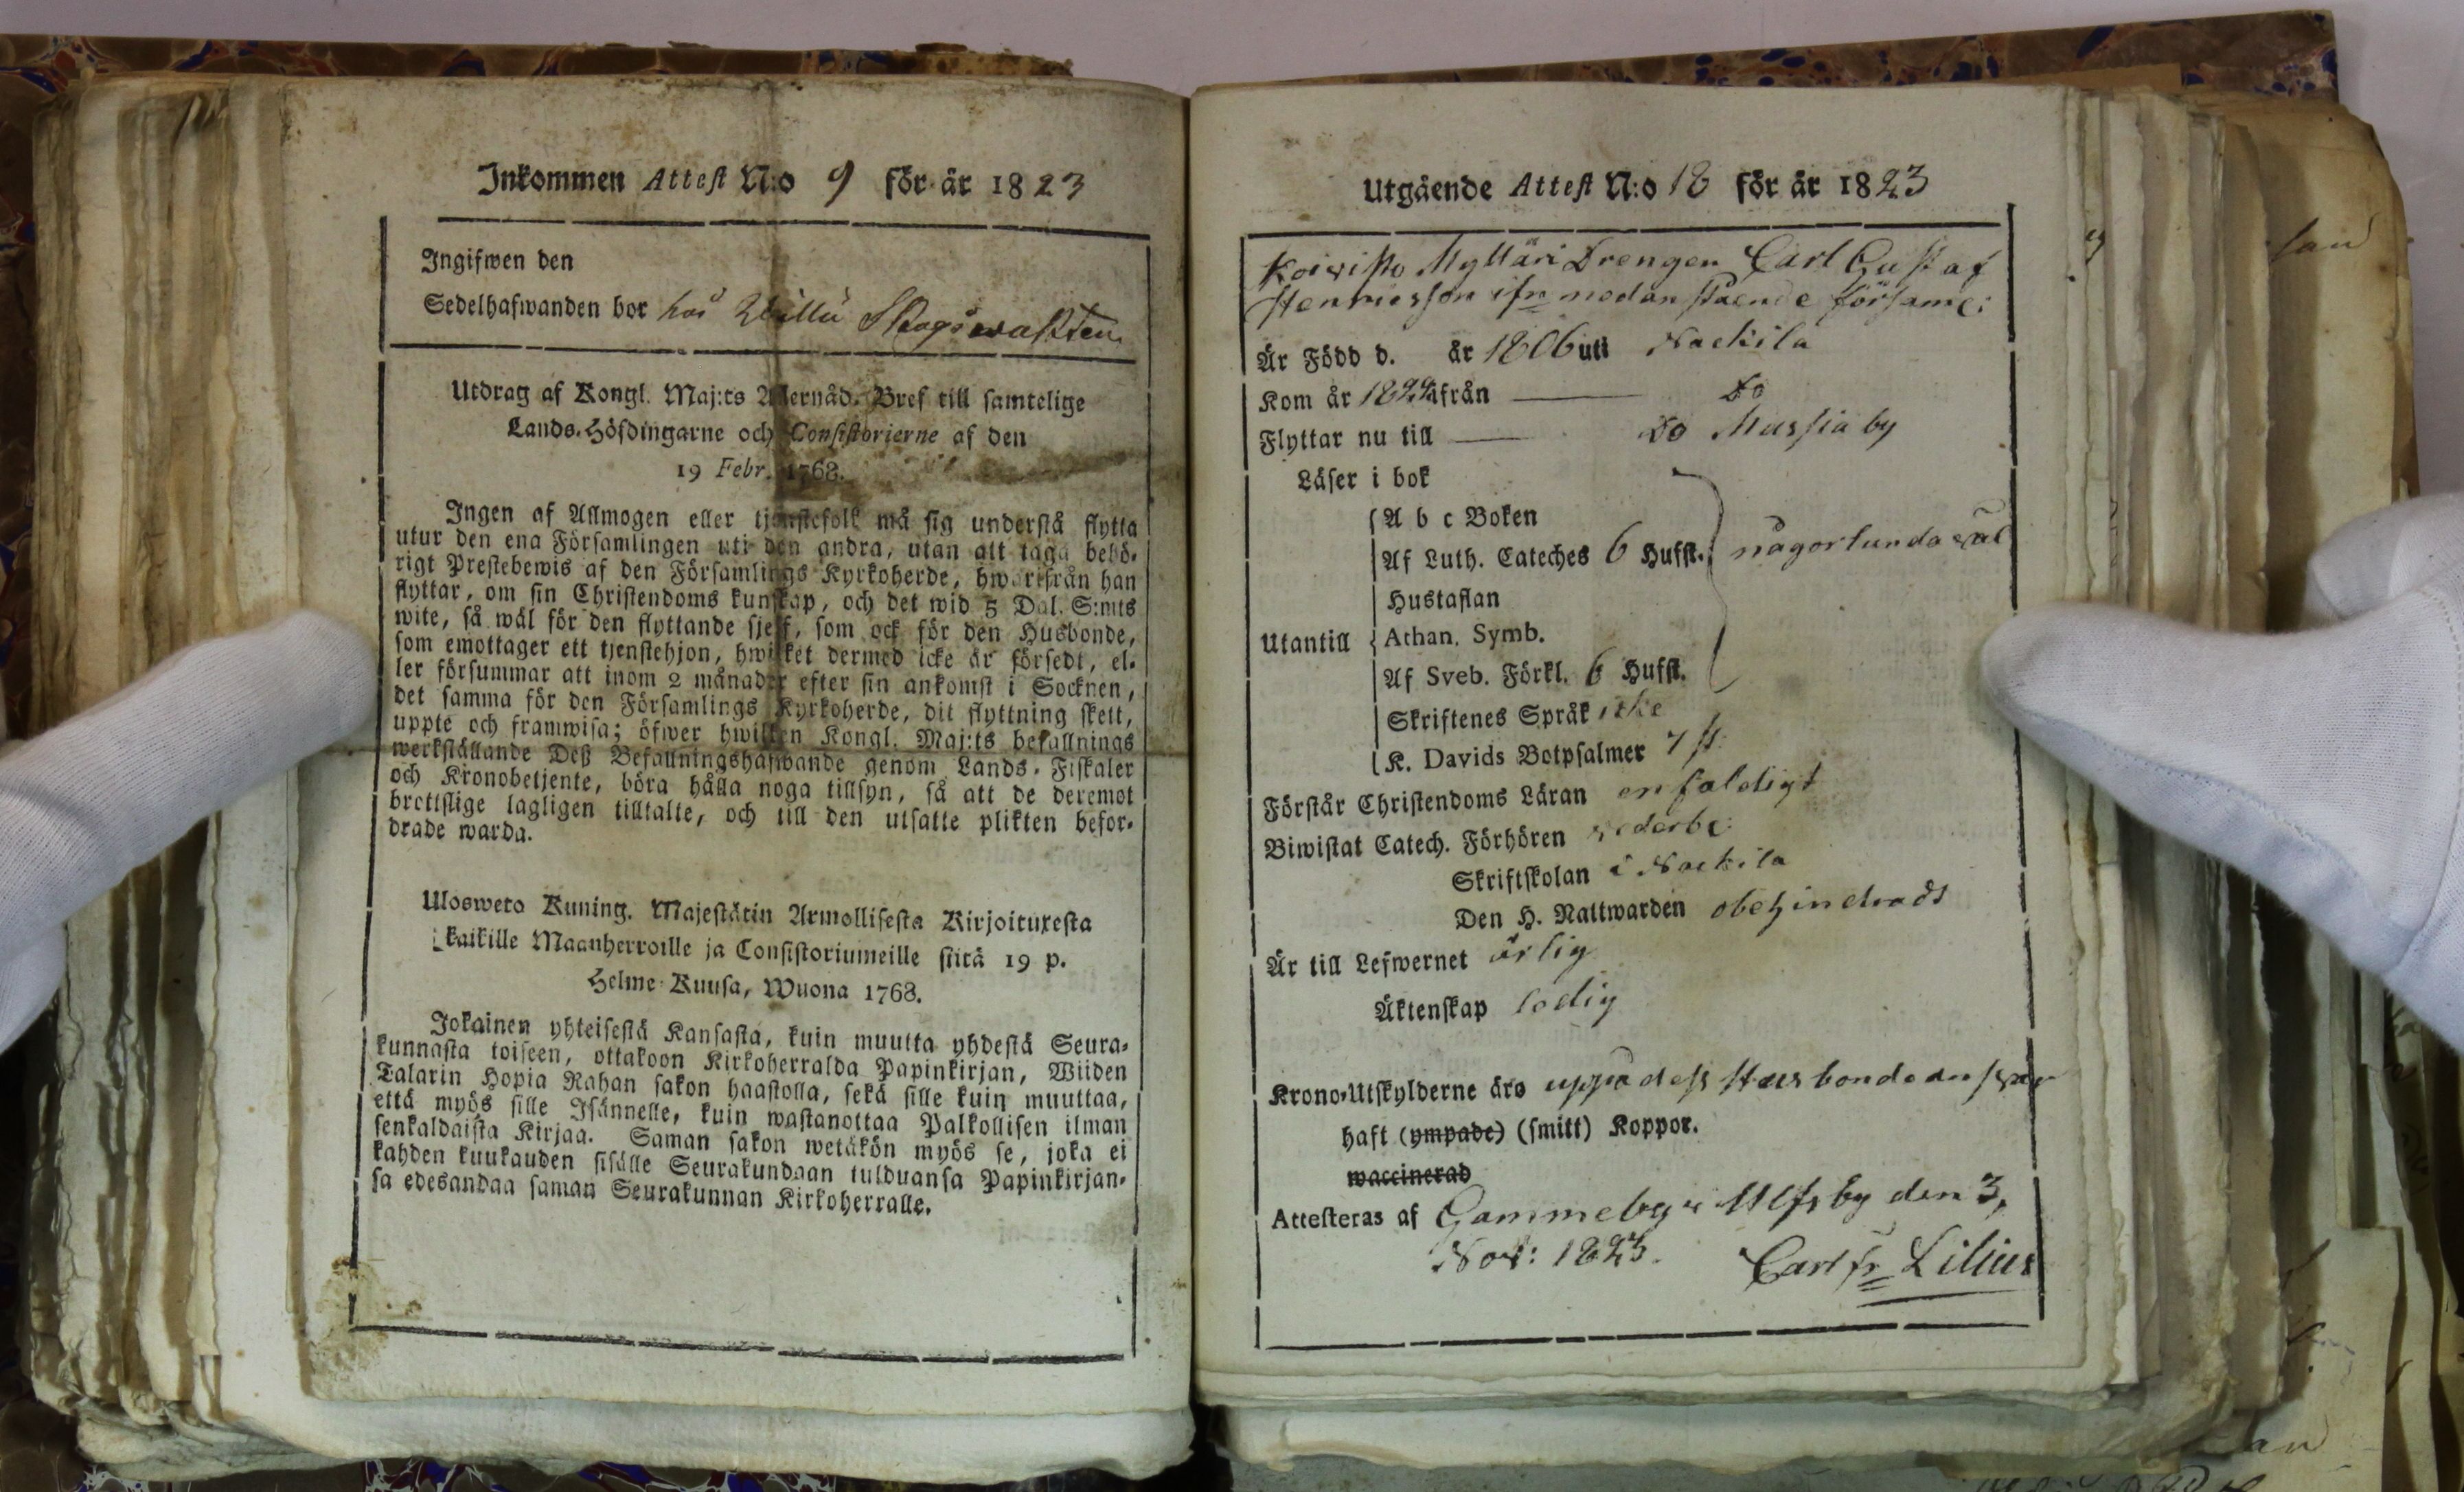 Inkommen Attest N:o 9 för år 1823
Ingifwen den
Sedelhafwanden bor hos Willu Skogswakten
Utdrag af Kongl. Maj:ts Allernåd. Bref till samtelige
Lands-Höfdingarne och Consistorierne af den
19 Febr. 1768.
Ingen af Allmogen eller tjenstefolk må sig understå flytta
utur den ena Församlingen uti den andra, utan att taga behö-
rigt Prestebewis af den Församlings Kyrkoherde, hwarifrån han
flyttar, om sin Christendoms kunskap, och det wid 5 Dal. S:mts
wite, så wäl för den flyttande sjelf, som ock för den Husbonde,
som emottager ett tjenstehjon, hwilket dermed icke är försedt, el-
ler försummar att inom 2 månader efter sin ankomst i Socknen,
det samma för den Församlings Kyrkoherde, dit flyttning skett,
uppte och framwisa; öfwer hwilken Kongl. Maj:ts befallnings
werkställande Deß Befallningshafwande genom Lands-Fiskaler
och Kronobetjente, böra hålla noga tillsyn, så att de deremot
brottslige lagligen tilltalte, och till den utsatte plikten befor-
drade warda.
Ulosweto Kuning. Majestätin Armollisesta Kirjoituxesta
kaikille Maanherroille ja Consistoriumeille siitä 19 p.
Helme-Kuusa, Wuona 1768.
Jokainen yhteisestä Kansasta, kuin muutta yhdestä Seura-
kunnasta toiseen, ottakoon Kirkoherralda Papinkirjan, Wiiden
Talarin Hopia Rahan sakon haastolla, sekä sille kuin muuttaa,
että myös sille Isännelle, kuin wastanottaa Palkollisen ilman
senkaldaista Kirjaa. Saman sakon wetäkön myös se, joka ei
kahden kuukauden sisälle Seurakundaan tulduansa Papinkirjan-
sa edesandaa saman Seurakunnan Kirkoherralle.
Utgående Attest N:o 18 för år 1823
Koivisto Mylläri Drengen Carl Gustaf
Henricsson ifn nedanstående församl:
Är Född d. år 1806 uti Nackila
Kom år 1822 ifrån Do
Flyttar nu till Do Massia by
Läser i bok
A b c Boken
Af Luth. Cateches 6 Hufst. någorlunda wäl
Hustaflan
Utantill Athan. Symb.
Af Sveb. Förkl. 6 Hufst.
Skriftenes Språk icke
K. Davids Botpsalmer 7 st.
Förstår Christendoms Läran enfaldigt
Biwistat Catech. Förhören vederb:
Skriftskolan i Nackila
Den H. Nattwarden obehindrads
Är till Lefwernet ärlig
Äktenskap ledig
Krono-Utskylderne äro uppå dess Husbonde answar
haft (ympade) (smitt) Koppor.
waccinerad
Attesteras af Gammelby i Ulfsby den 3,
Nov: 1823. Carl Fr Lilius